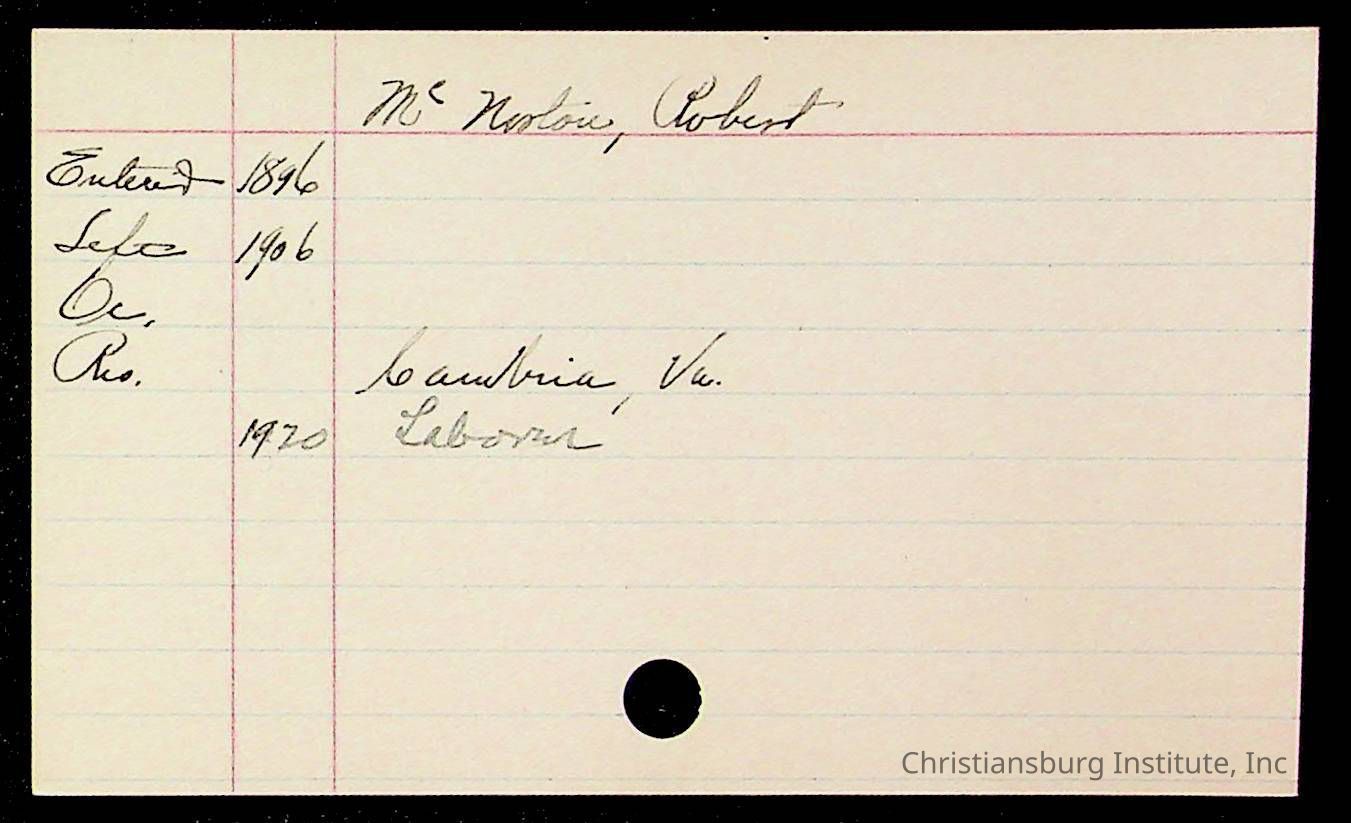 Mc Norton, Robert
Entered 1896
Left 1906
Oc.
Res. Cambria, Va.
1920 Laborer
Christiansburg Institute, Inc